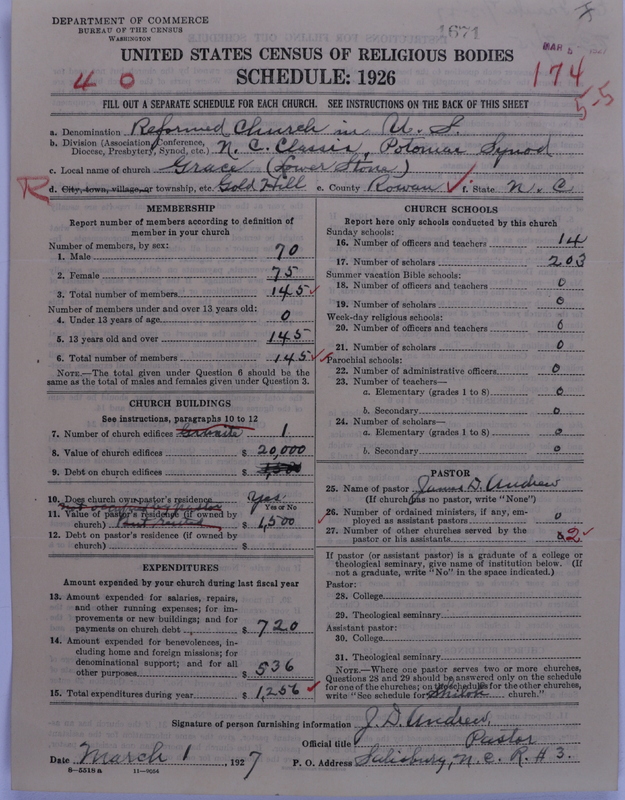 DEPARTMENT OF COMMERCE
BUREAU OF THE CENSUS
WASHINGTON
1671
MAR
UNITED STATES CENSUS OF RELIGIOUS BODIES
SCHEDULE: 1926
4 0
174
5-5
FILL OUT A SEPARATE SCHEDULE FOR EACH CHURCH. SEE INSTRUCTIONS ON THE BACK OF THIS SHEET
a. Denomination Reformed Church in U. S.
b. Division (Association, Conference,
Diocese, Presbytery, Synod, etc.) N. C. Classis, Potomac Synod
c. Local name of church Grace (Lower Stone)
R d. City, town, village, or township, etc. Gold Hill e. County Rowan f. State N. C
MEMBERSHIP
Report number of members according to definition of
member in your church
Number of members, by sex:
1. Male 70
2. Female 75
3. Total number of members 145
Number of members under and over 13 years old:
4. Under 13 years of age 0
5. 13 years old and over 145
6. Total number of members 145
NOTE.—The total given under Question 6 should be
same as the total of males and females given under Question 3.
CHURCH BUILDINGS
See instructions, paragraphs 10 to 12
7. Number of church edifices Granite 1
8. Value of church edifices $ 20,000
9. Debt on church edifices $
10. Does church own pastor's residence Yes
not occupied by pastor Yes or No
11. Value of pastor's residence (if owned by
church) $ 1,500
12. Debt on pastor's residence (if owned by
church) $
EXPENDITURES
Amount expended by your church during last fiscal year
13. Amount expended for salaries, repairs,
and other running expenses; for im-
provements or new buildings; and for
payments on church debt $ 720
14. Amount expended for benevolences, in-
cluding home and foreign missions; for
denominational support; and for all
other purposes $ 536
15. Total expenditures during year $ 1,256
CHURCH SCHOOLS
Report here only schools conducted by this church
Sunday schools:
16. Number of officers and teachers 14
17. Number of scholars 203
Summer vacation Bible schools:
18. Number of officers and teachers 0
19. Number of scholars 0
Week-day religious schools:
20. Number of officers and teachers 0
21. Number of scholars 0
Parochial schools:
22. Number of administrative officers 0
23. Number of teachers—
a. Elementary (grades 1 to 8) 0
b. Secondary 0
24. Number of scholars—
a. Elementary (grades 1 to 8) 0
b. Secondary 0
PASTOR
25. Name of pastor James D. Andrew
(If church has no pastor, write "None")
26. Number of ordained ministers, if any, em-
ployed as assistant pastors 0
27. Number of other churches served by the
pastor or his assistants 2
If pastor (or assistant pastor) is a graduate of a college or
theological seminary, give name of institution below. (If
not a graduate, write "No" in the space indicated.)
Pastor:
28. College
29. Theological seminary
Assistant pastor:
30. College
31. Theological seminary
NOTE.—Where one pastor serves two or more churches,
Questions 28 and 29 should be answered only on the schedule
for one of the churches; on the schedules for the other churches,
write "See schedule for Shiloh church."
Signature of person furnishing information J. D. Andrew
Official title Pastor
Date March 1, 1927 P. O. Address Salisbury, N. C. R # 3.
8—5518 a 11—9054